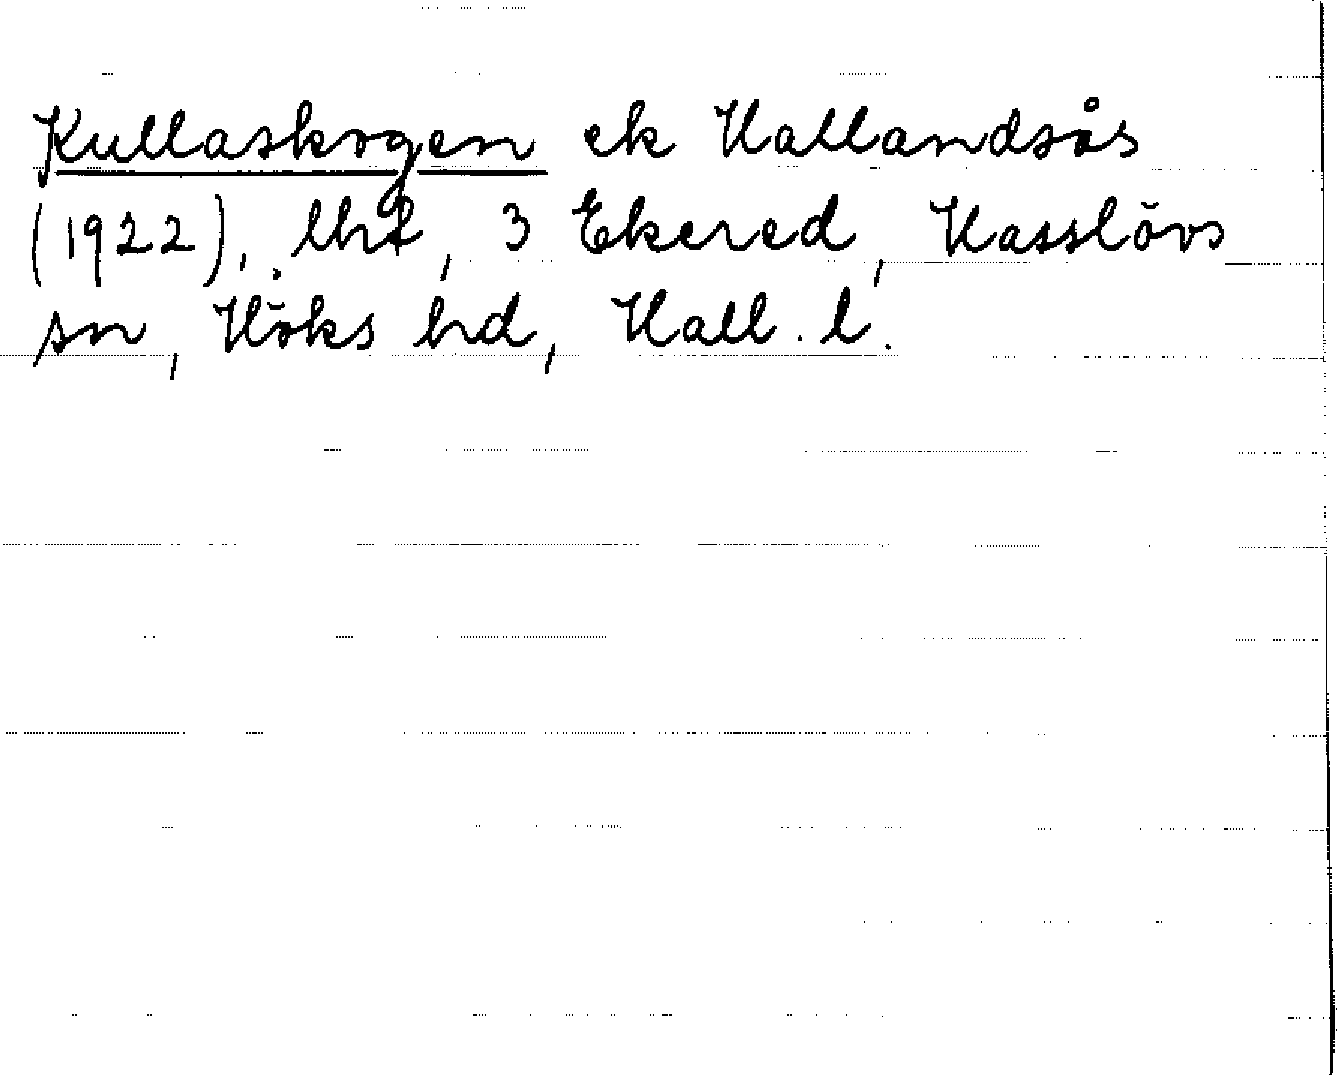 Kullaskogen ek Hallandsås
(1922), lht, 3 Ekered, Hasslövs
sn, Höks hd, Hall. l.